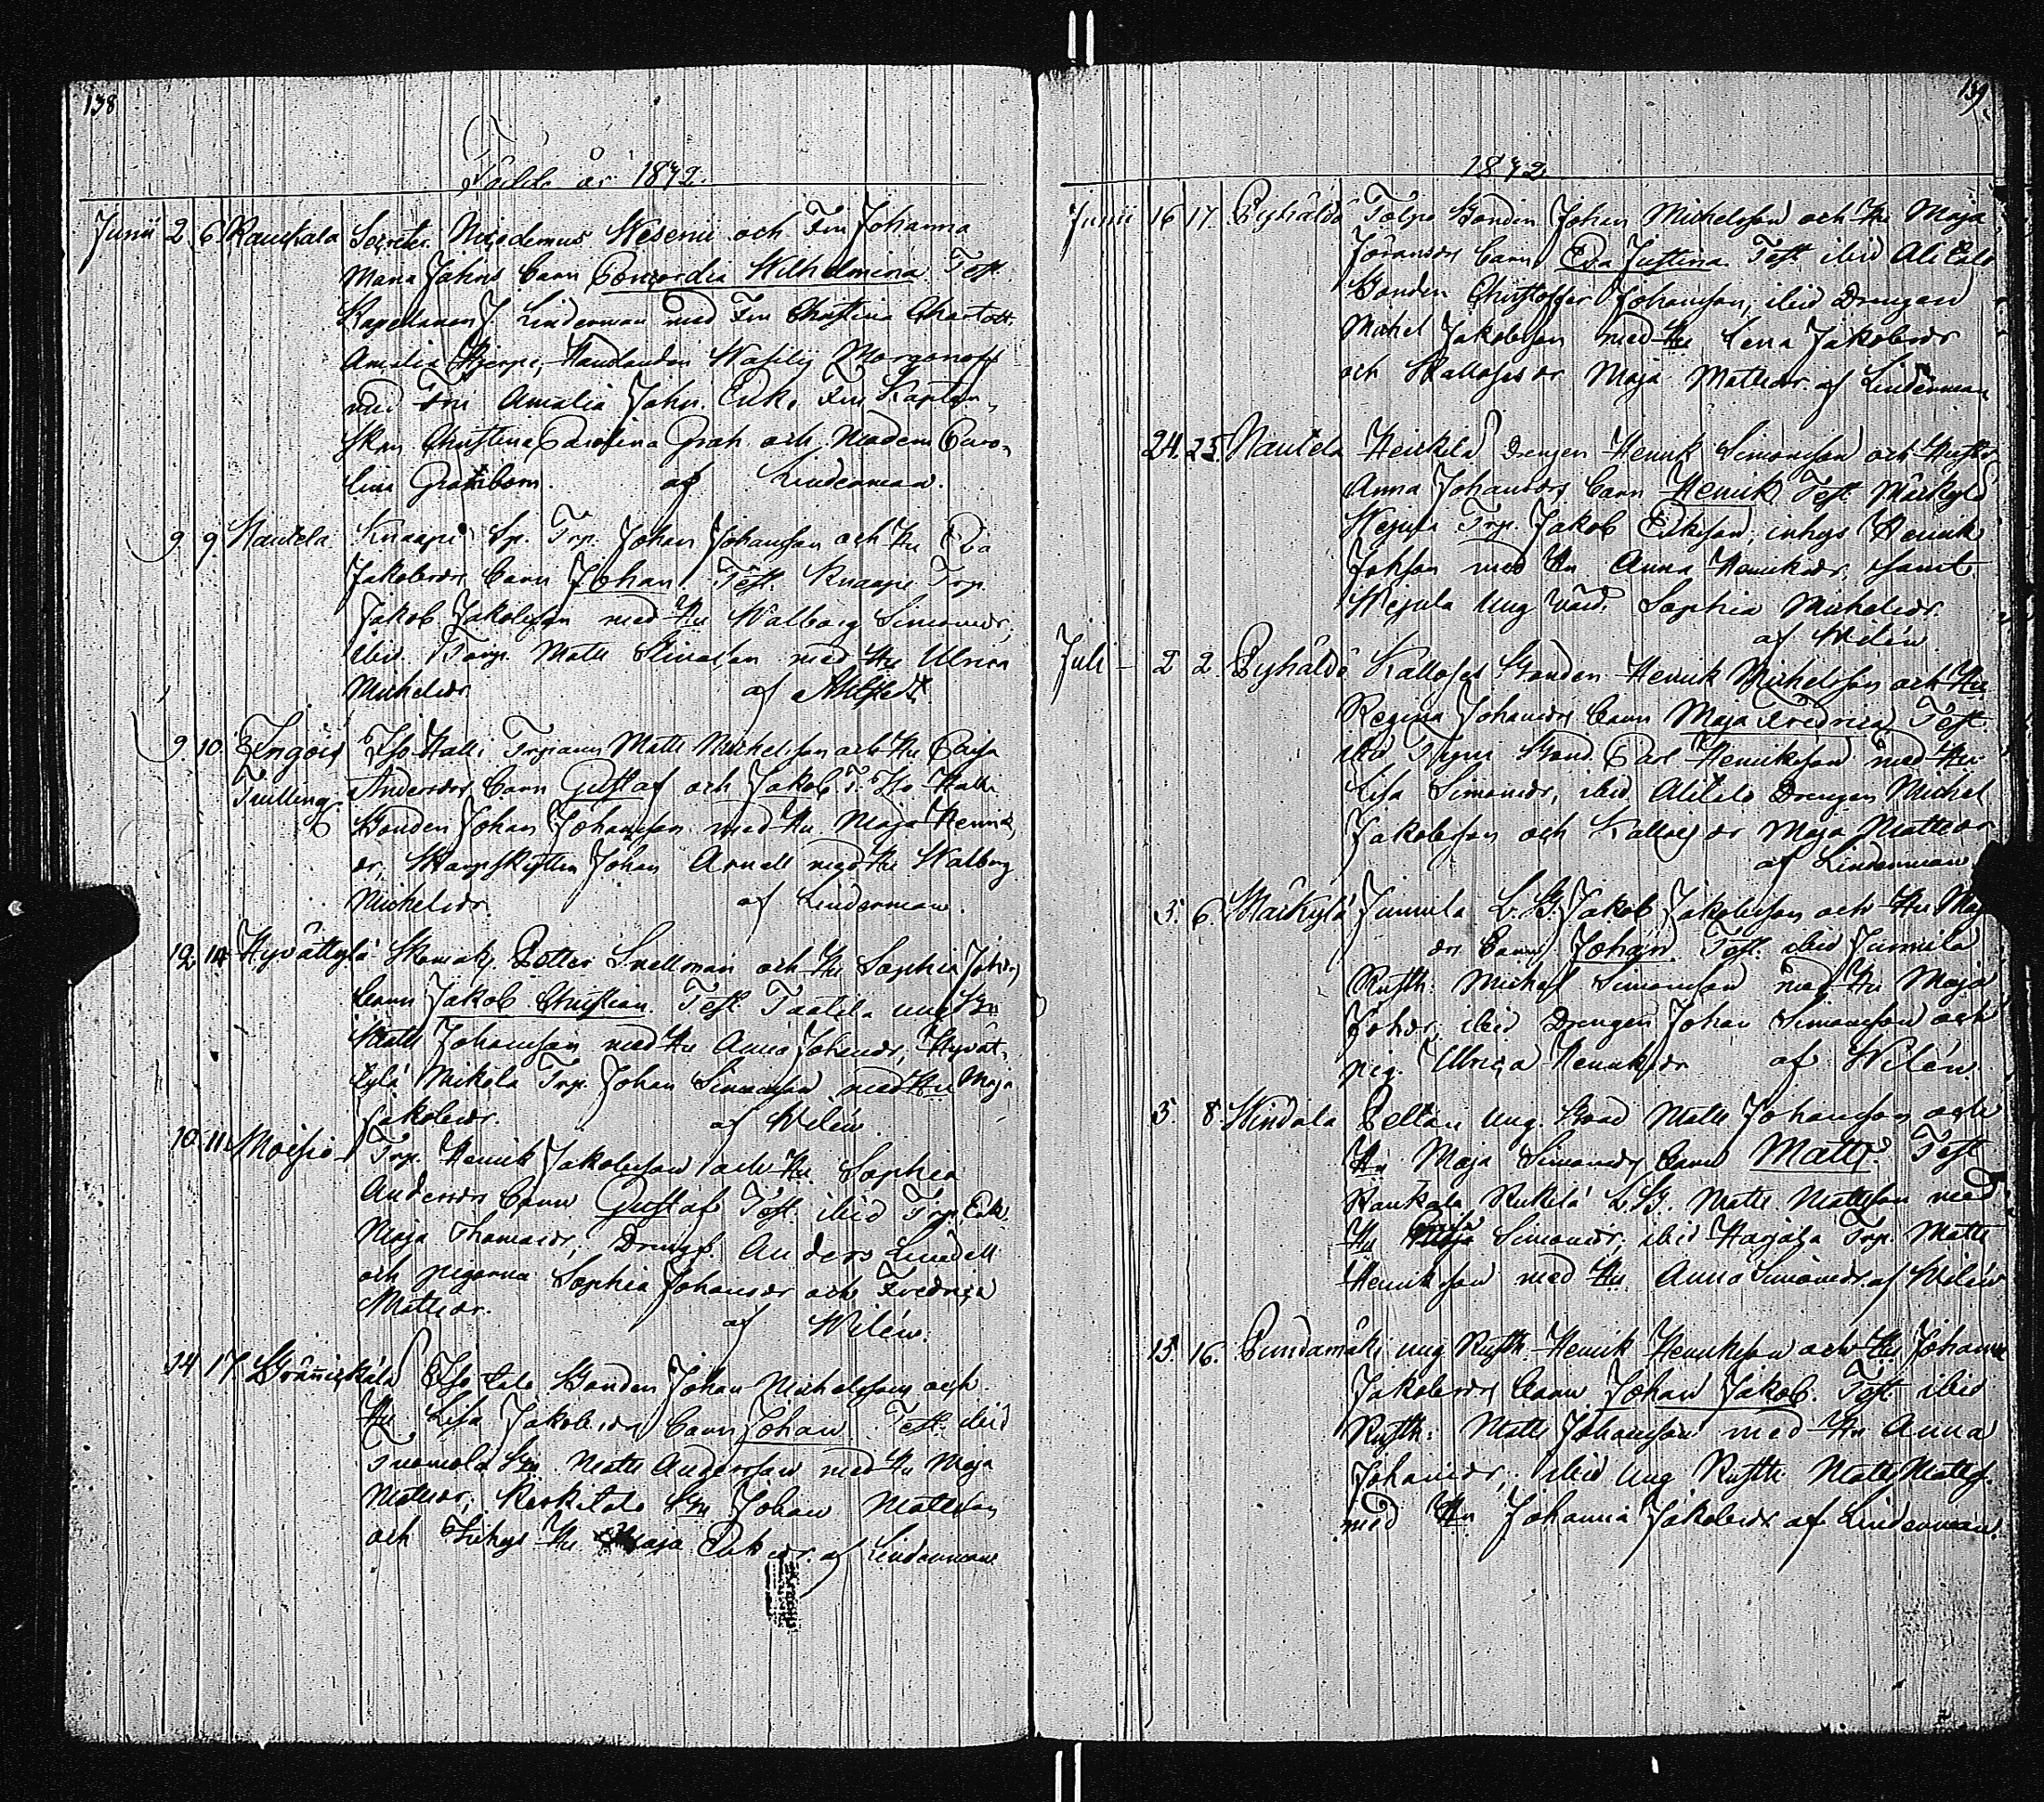 138
Födde år 1842.
Junii 2. 6. Raukala Secreter. Nicodemus Wesenii och Fru Johanna
Maria Jahns barn Concordia Wilhelmina Test.
Kapelanen J. Linderman med Fru Christina Charlott.
Amalia Hjerpe, Handlanden Wasilij Morgonoff
med Fru Amalia Jahn. Enke Fru Kapten-
skan Christina Carolina Grah och Madem Caro-
lina Grahn. af Linderman.
9 9. Nautela Knaapi Sp. Trp. Johan Johansson och Hu Eva
Jakobsdr barn Johan Test. Knaapi Trp.
Jakob Jakobsson med Hu Walborg Simonsdr,
ibid Torp. Matts med Hu Ulrica
Michelsdr. af Ahlstedt.
9. 10. Engöis Iso Halli Trpann Matts Michelsson och Hu Caisa
Tvilling. Andersdr barn Gustaf och Jakob T. Iso Halli
Bonden Johan Johansson med Hu Maja Henriks
dr, Skarpskytten Johan Arnell med Hu Walborg
Michelsdr. af Linderman.
12 14 Hyvättylä Skomak. Petter Snellman och Hu Sophia Johsdr
barn Jakob Christian. Test Taatila ung Bn
Matts Johansson med Hu Anna Johansdr, Hyvät-
tylä Mikola Trp. Johan Simonsson med Hu Maja
Jakobsdr. af Wilén.
10. 11. Moisio Trp. Henrik Jakobsson och Hu Sophia
Andersdr barn Gustaf Test. ibid Trp. Enk.
Maja Thomasdr, Drengs. Anders Lindell
och pigorna Sophia Johansdr och Fredrica
Mattsdr. af Wilén.
14 17. Grännickälä Iso talo Bonden Johan Michelsson och
Hu Lisa Jakobsdr barn Johan Test. ibid
Tuomola Bn Matts Andersson med Hu Maja
Mattsdr, Keskitalo Bn Johan Mattsson
och Inhys Hu Maja Eriksdr. af Linderman
139
1842.
Junii 16 17. Pyhäldö Tölpo Bonden Johan Michelsson och Hu Maja
Göransdr barn Eva Justina Test. ibid Ali talo
Bonden Christoffer Johansson, ibid Drengen
Michel Jakobsson med Hu Lena Jakobsdr
och Kallosos dr Maja Mattsdr af Linderman
24. 25. Nautela Heickilä Drengen Henrik Simonsson och Hustr
Anna Johansdr barn Henrik Test. Märkylä
Wejula Trp. Jakob Eriksson, inhys Henrik
Johsson med Hu Anna Henriksdr, samt
Wejula Ung Sophia Michelsdr.
af Wilén
Juli 2 2. Pyhäldö Kallosos Bonden Henrik Michelsson och Hu
Regina Johansdr barn Maja Fredrica Test.
ibid Bond. Carl Henriksson med Hu
Lisa Simonsdr, ibid Alitalo Drengen Michel
Jakobsson och Kallosos dr Maja Mattsdr
af Linderman
3. 6. Märkylä Jumila L. B. Jakob Jakobsson och Hu Maj
dr barn Johan Test. ibid Jumila
Rusth: Michel Simonsson med Hu Maja
Johsdr, ibid Drengen Johan Simonsson och
pig. Ulrica Henriksdr af Wilén.
5. 8. Windala Peltari Ung. Bond Matts Johansson och
Hu Maja Simonsdr barn Matts Test
Raukala Rukilä L. B. Matts Mattsson med
Hu Caisa Simonsdr, ibid Harjala Trp. Matts
Henriksson med Hu Anna Simonsdr. af Wilén
15. 16. Pundamäki ung Rusth. Henrik Henriksson och Hu Johanna
Jakobsdr barn Johan Jakob. Test. ibid
Rusth: Matts Johansson med Hu Anna
Johansdr, ibid Ung Rusth: Matts Mattss.
med Hu Johanna Jakobsdr af Linderman.